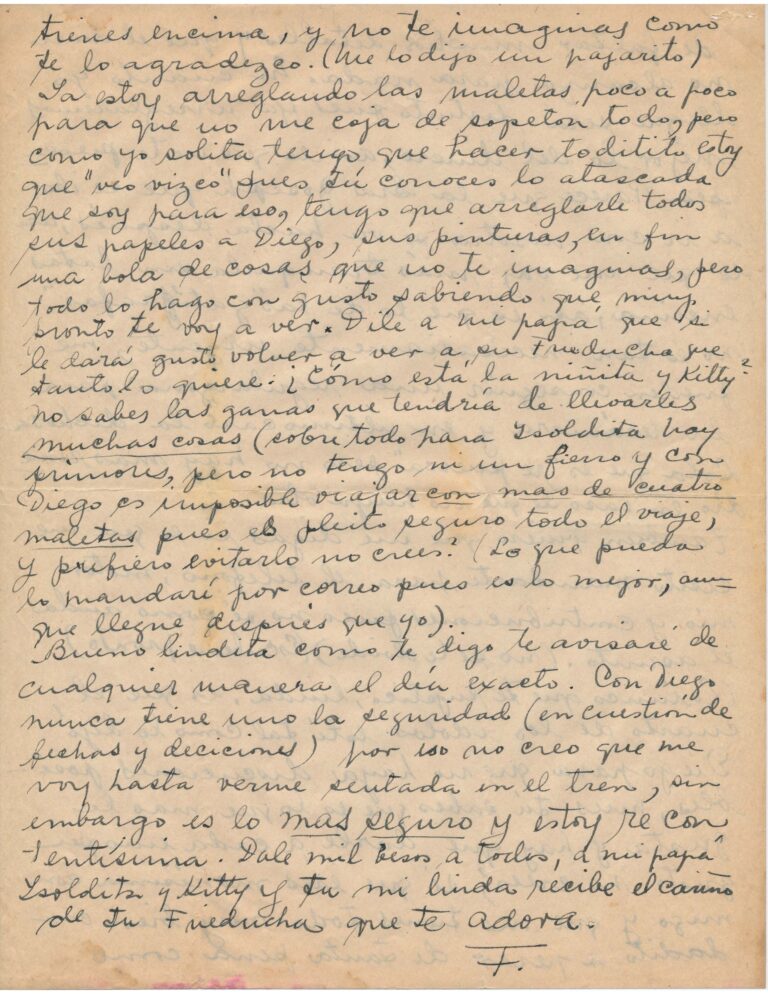 tienes encima, y no te imaginas como
te lo agradezco. (Me lo dijo un pajarito)
Ya estoy arreglando las maletas poco a poco
para que no me coja de sopeton todo, pero
como yo solita tengo que hacer toditito estoy
que "veo vizco" pues tú conoces lo atascada
que soy para eso, tengo que arreglarle todos
sus papeles a Diego, sus pinturas, en fin
una bola de cosas que no te imaginas, pero
todo lo hago con gusto sabiendo que muy
pronto te voy a ver. Dile a mi papá que si
le dará gusto volver a ver a su Frieducha que
tanto lo quiere. ¿Cómo está la niñita y Kitty?
no sabes las ganas que tendría de llevarles
muchas cosas (sobre todo para Isoldita hay
primores, pero no tengo ni un fierro y con
Diego es imposible viajar con mas de cuatro
maletas pues es pleito seguro todo el viaje,
y prefiero evitarlo no crees? (Lo que pueda
lo mandaré por correo pues es lo mejor, aun-
que llegue después que yo).
Bueno lindita como te digo te avisaré de
cualquier manera el día exacto. Con Diego
nunca tiene uno la seguridad (en cuestión de
fechas y deciciones) por eso no creo que me
voy hasta verme sentada en el tren, sin
embargo es lo mas seguro y estoy re con
tentísima. Dale mil besos a todos, a mi papá
Isoldita y Kitty y tu mi linda recibe el cariño
de tu Frieducha que te adora.
F.